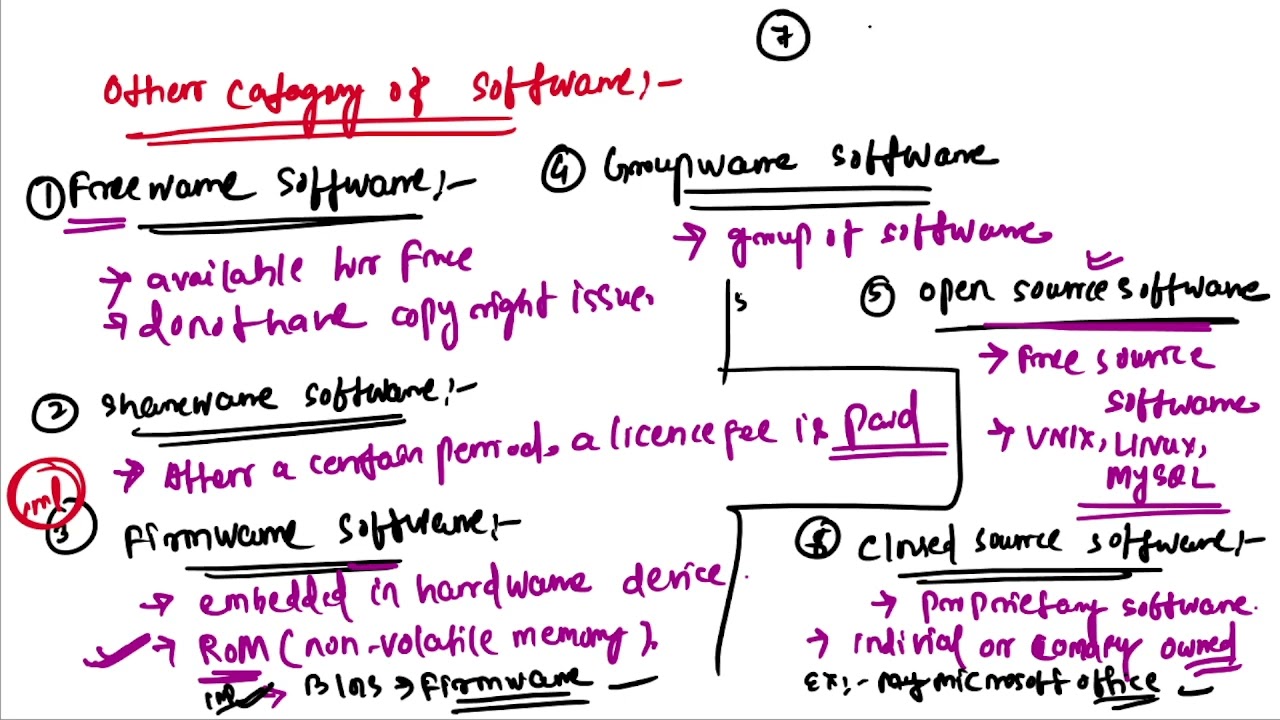 7
Other category of software:-
1 Freeware software:-
→ available for free
→ do not have copyright issue.
2 shareware software:-
→ After a certain period. a licence fee is paid
imp
3 Firmware software:-
→ embedded in hardware device.
→ ROM (non-volatile memory).
imp → BIOS → Firmware
4 Groupware software
→ group of software
s
5 open source software
→ free source
software
→ UNIX, LINUX,
MySQL
6 Closed source software:-
→ proprietary software.
→ indivial or company owned
Ex:- microsoft office